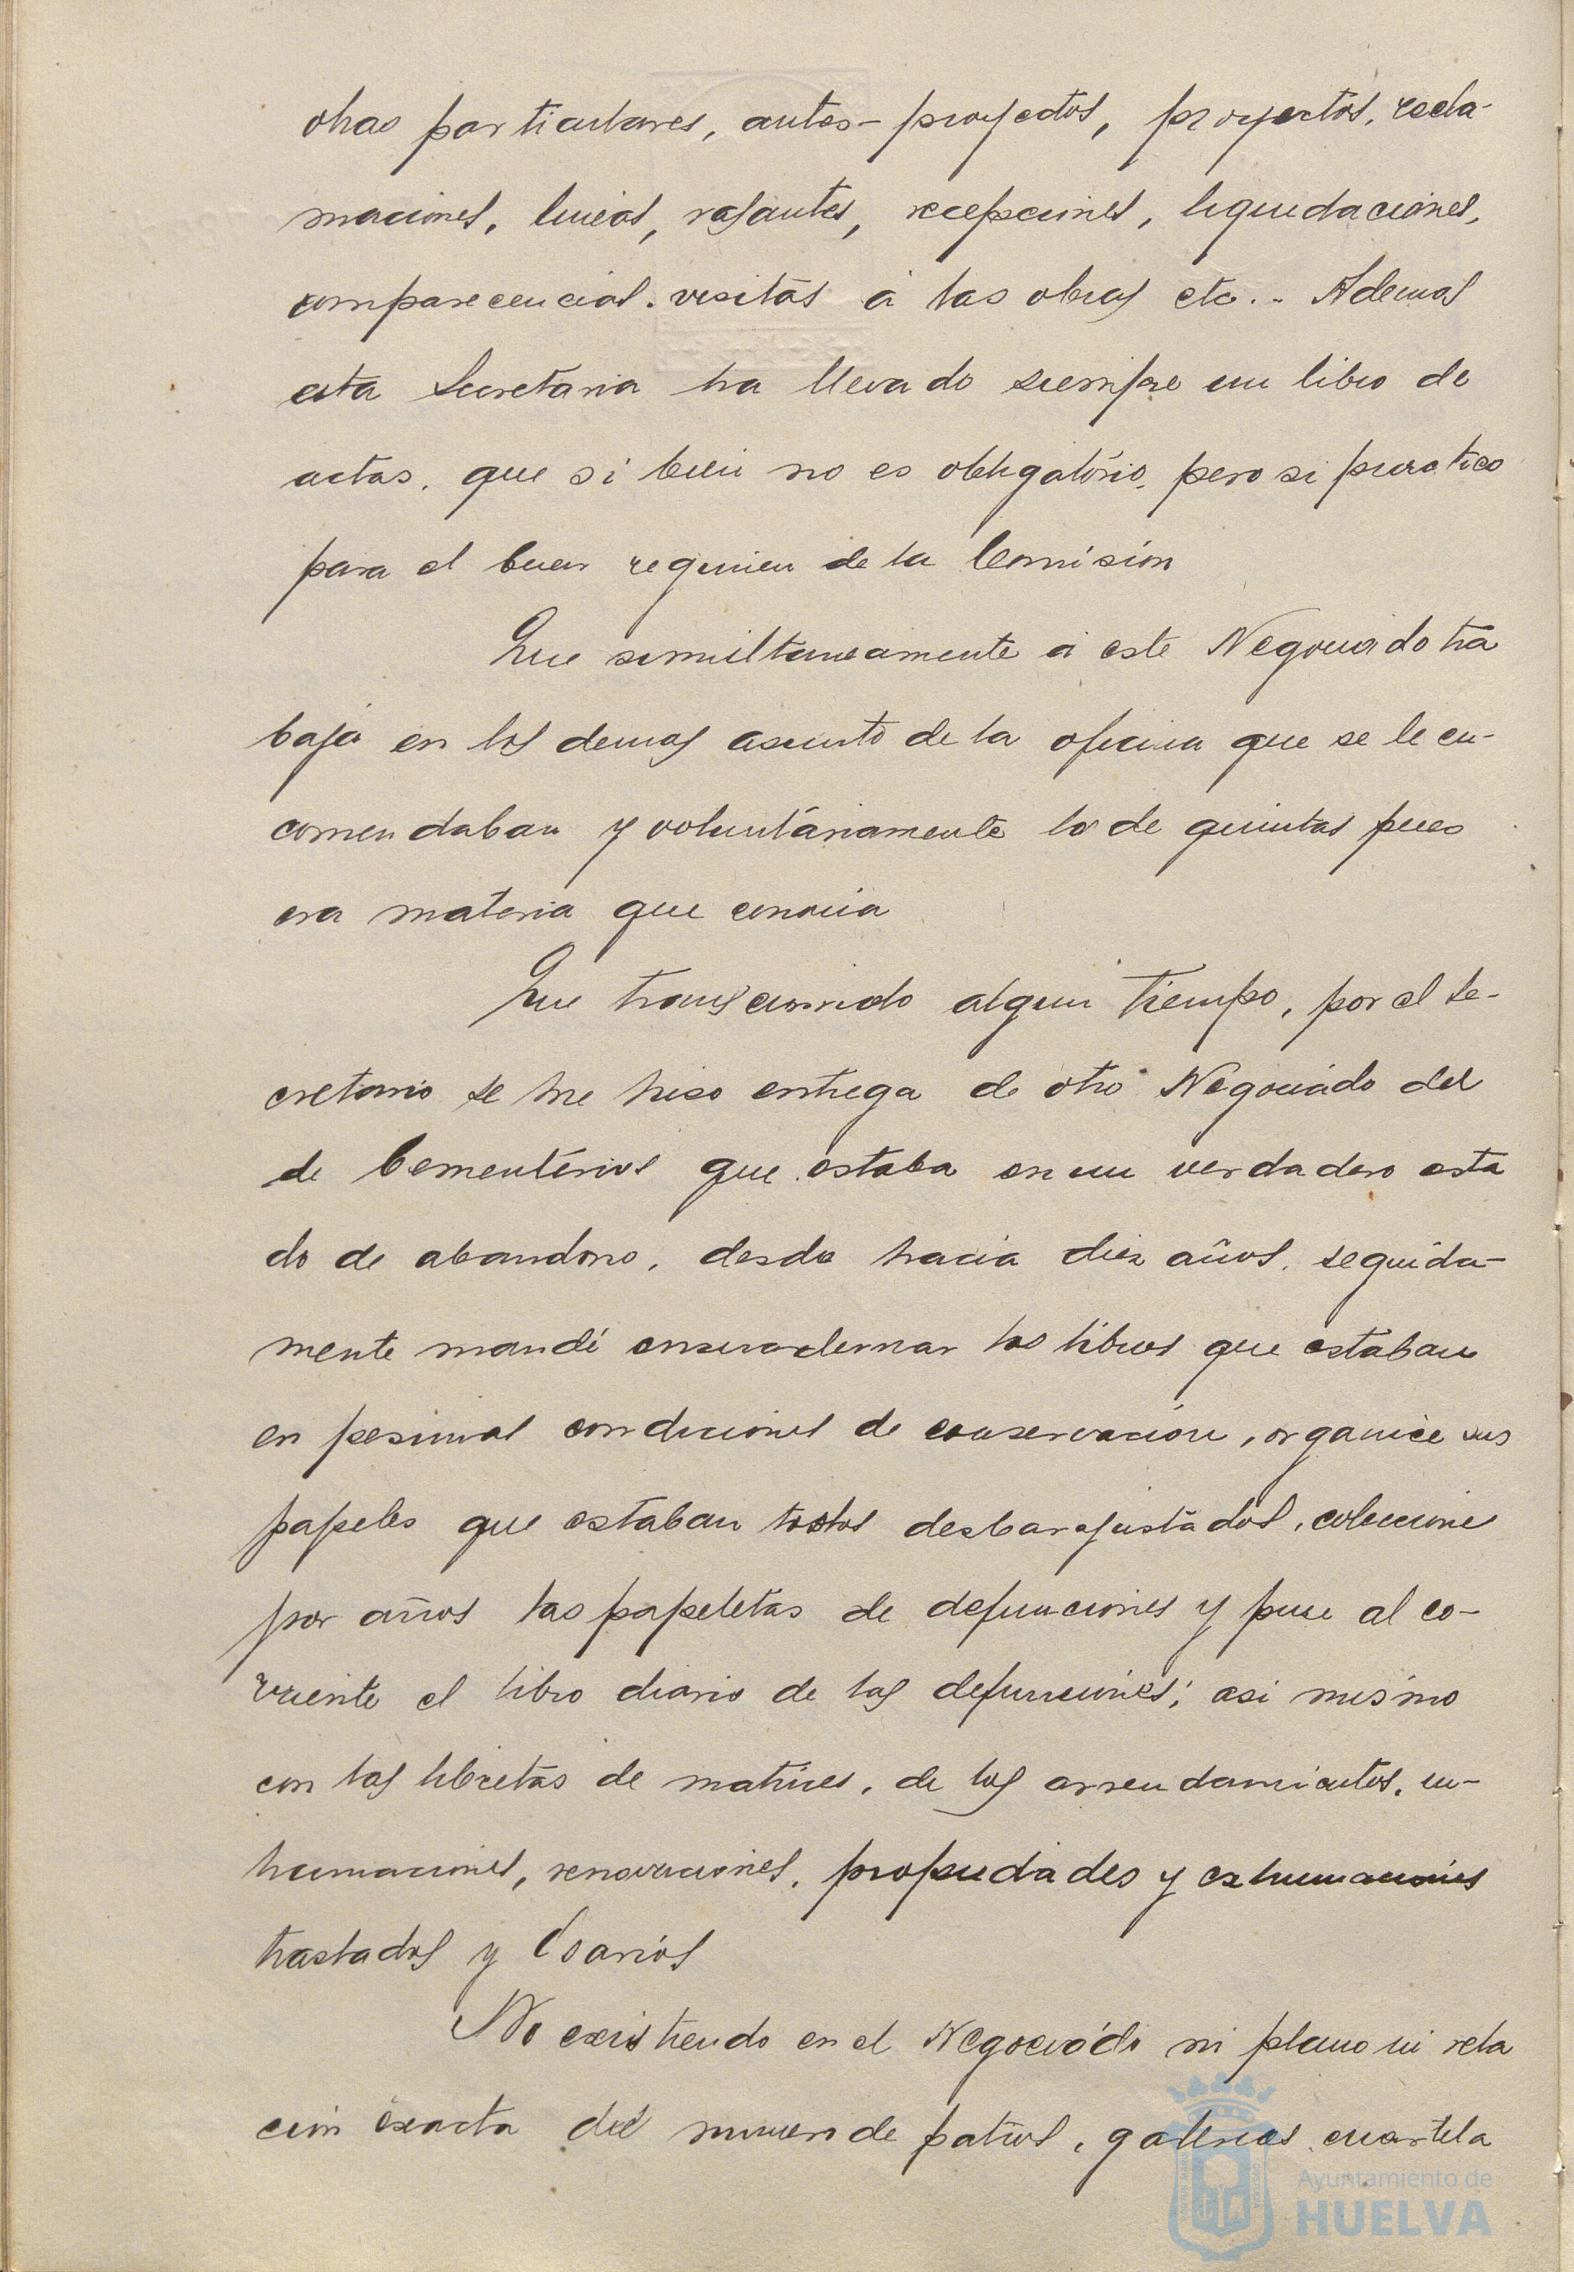 obras particulares, antes-proyectos, proyectos, recla-
maciones, lineas, rasantes, recepciones, liquidaciones,
comparecencias. visitas á las obras etc.. Ademas
esta Secretaria ha llevado siempre un libro de
actas, que si bien no es obligatorio, pero si practico
para el buen regimen de la Comisión
Que simultaneamente á este Negociado tra
bajá en los demas asunto de la oficina que se le en-
comendaban y voluntáriamente lo de quintas pues
era materia que conocia
Que transcurrido algun tiempo, por el Se-
cretario se me hiso entrega de otro Negociado del
de Cementérios que estaba en un verdadero esta
do de abandono, desde hacia diez años, seguida-
mente mandé encuadernar los libros que estaban
en pesimas condiciones de conservación, organicé sus
papeles que estaban todos desbarajustados, coleccione
por años las papeletas de defunciones y puse al co-
rriente el libro diario de las defunciones; asi mismo
con las libretas de matrices, de los arrendamientos, in-
humaciones, renovaciones, propiedades y exhumaciones
traslados y Osarios
No existiendo en el Negociado ni plano ni rela
ción exacta del numero de patios, galerias cuartela
Ayuntamiento de
HUELVA